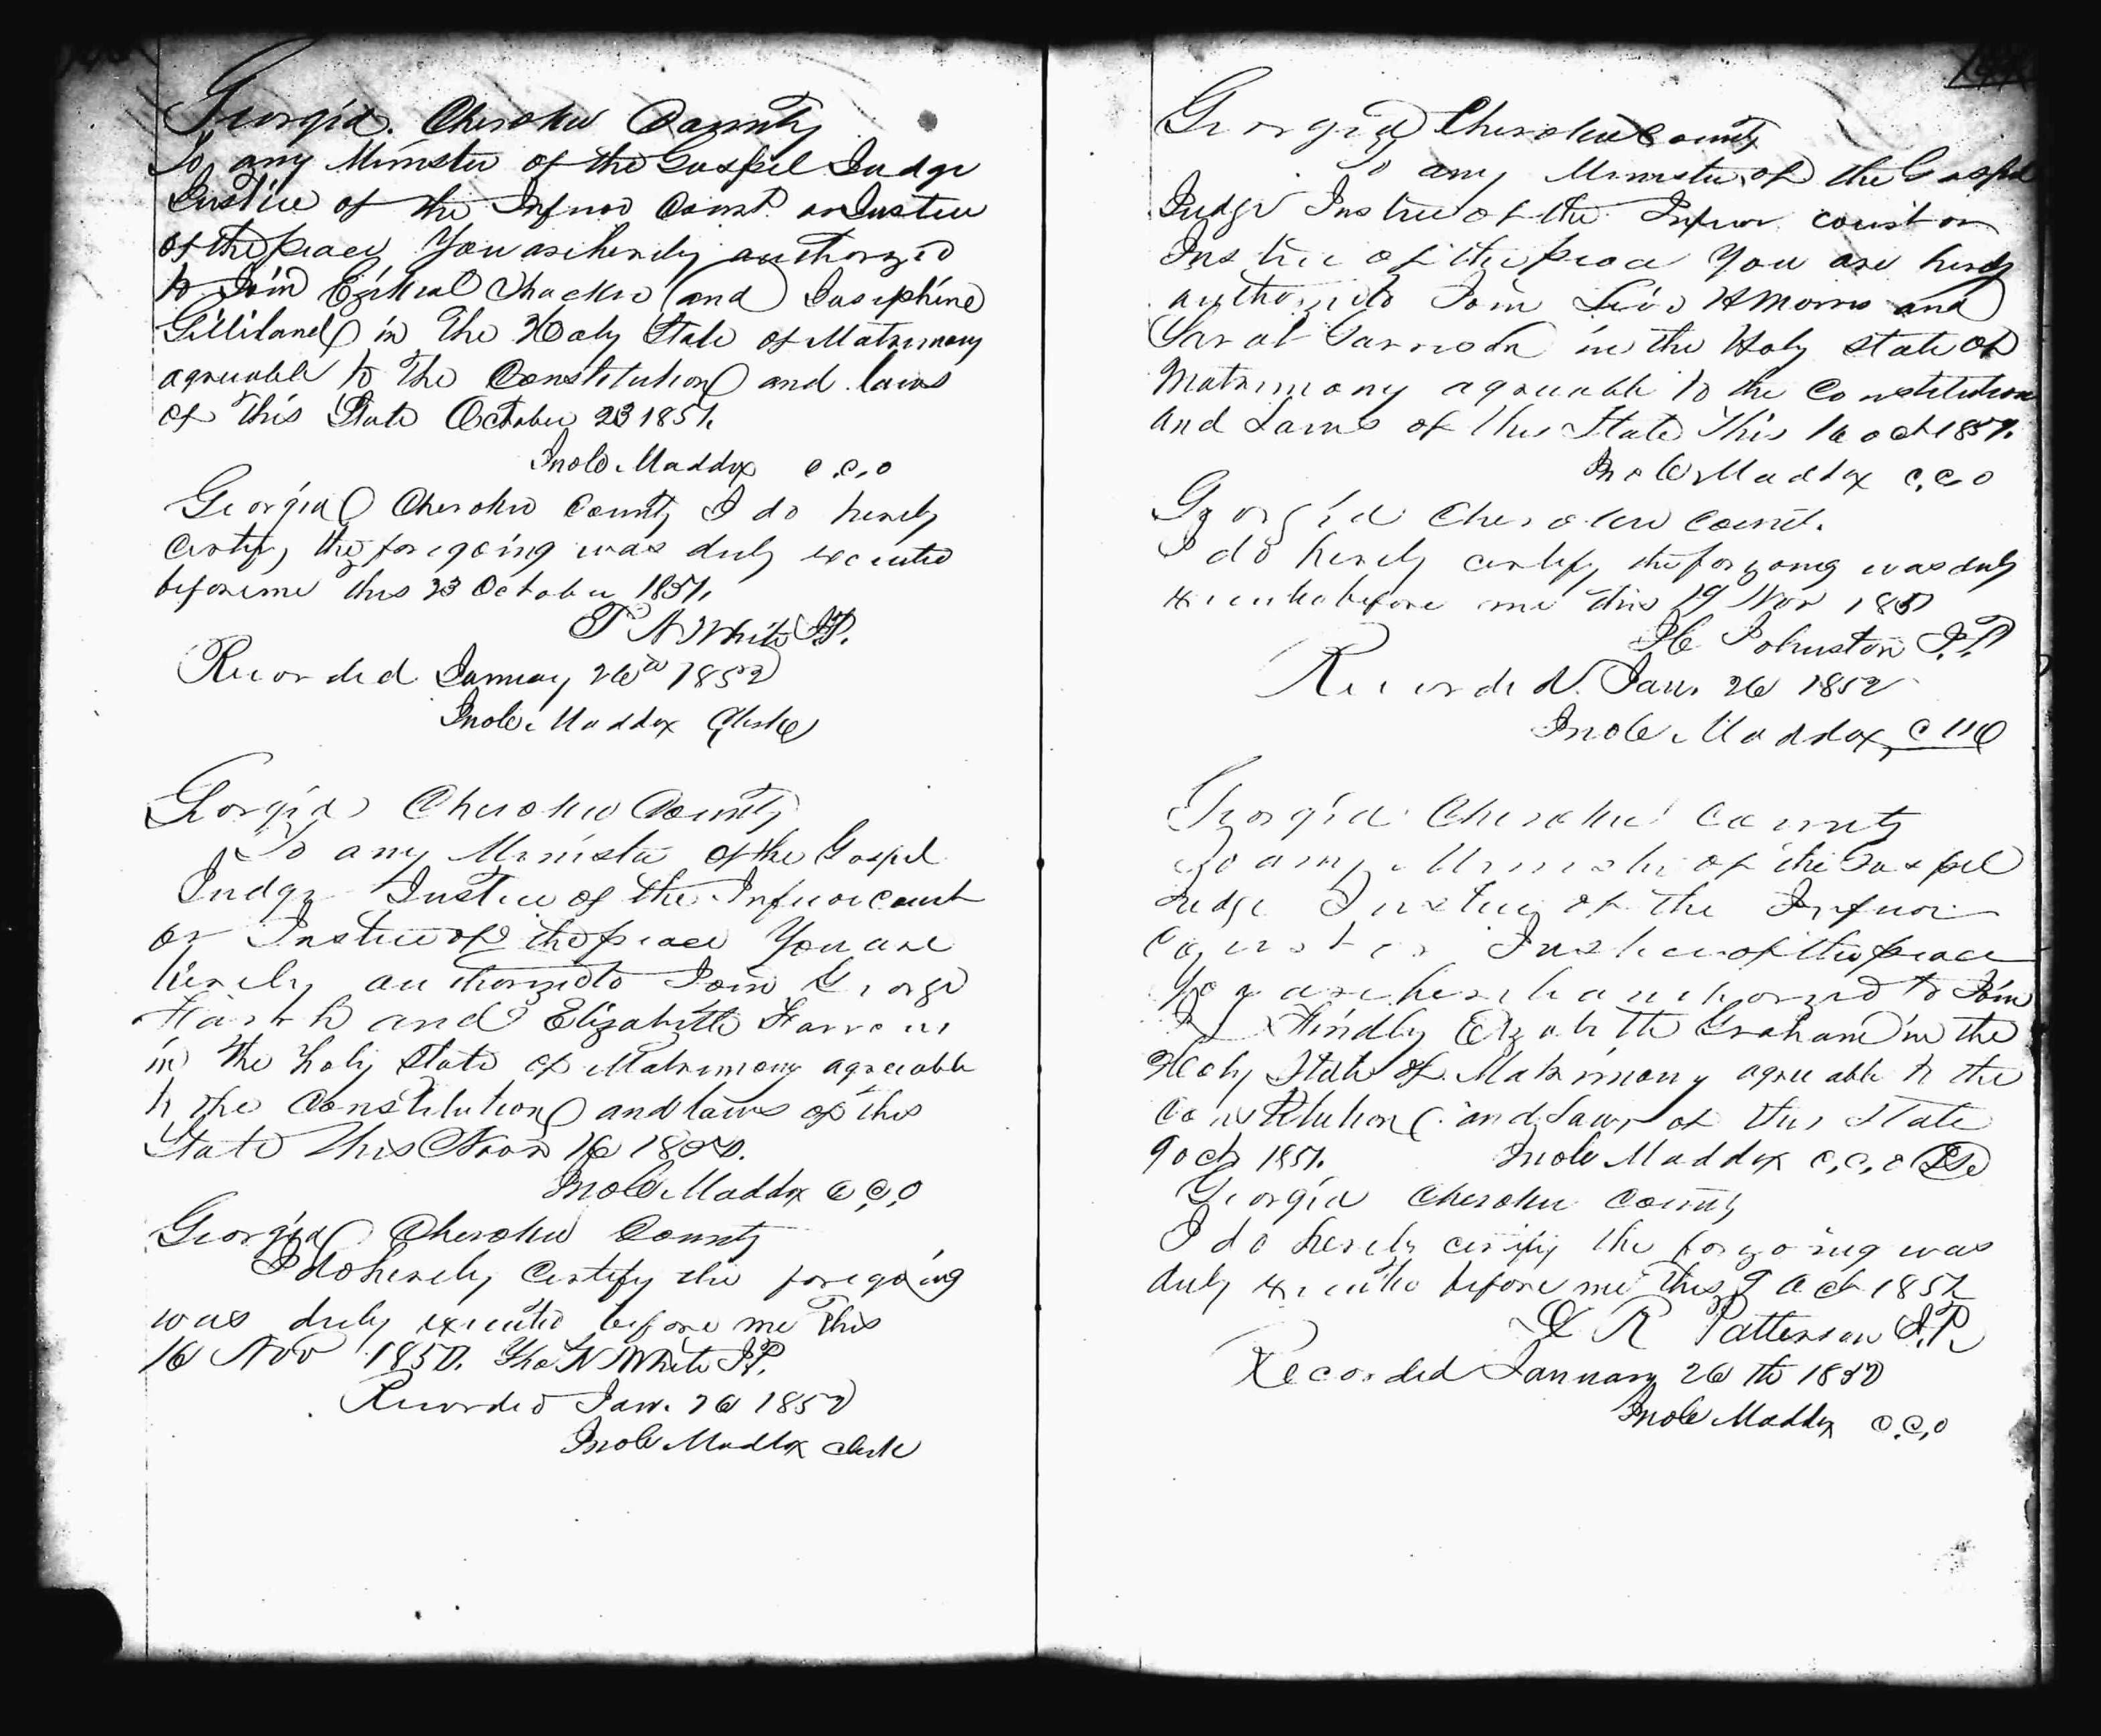 Georgia. Cherokee County
To any Minister of the Gospel Judge
Justice of the Inferior Court or Justice
of the peace You are hereby authorized
to Join Ezekiel Thacker and Josephine
Gilliland in the Holy State of Matrimony
agreeable to the Constitution and laws
of this State October 23 1851.
Jno C. Maddox C.C.O
Georgia Cherokee County I do hereby
Certify the foregoing was duly executed
before me this 23 October 1851.
T N White J.P.
Recorded January 26th 1852
Jno C. Maddox Clerk
Georgia Cherokee County
To any Minister of the Gospel
Judge Justice of the Inferior Court
or Justice of the peace You are
hereby authorized to Join George
and Elizabeth
in the Holy State of Matrimony agreeable
to the Constitution and laws of this
State This Novr 16
Jno C Maddox C C,O
Georgia Cherokee County
I do hereby Certify the foregoing
was duly executed before me This
16 Nov Tho N White J.P.
Recorded Jan. 26 1852
Jno C Maddox Clerk
Georgia Cherokee County
To any Minister of the Gospel
Judge Justice of the Inferior court or
Justice of the peace You are hereby
authorized to Join H Morris and
Sarah Garrison in the Holy state of
Matrimony agreeable to the Constitution
and Laws of this State This 16 oct 1851.
Jno C Maddox C,C,O
Georgia Cherokee County.
I do hereby certify the forgoing was duly
executed before me this 19 Nov
Johnston J.P.
Recorded. Jan. 26 1852
Jno C Maddox
Georgia Cherokee County
To any Minister of the Gospel
Judge Justice of the Inferior
Court or Justice of the peace
You are hereby authorized to Join
Hindly Elizabeth Graham in the
Holy State of Matrimony agreeable to the
Constitution and Laws of this State
9 oct 1851. Jno C Maddox C.C.O
Georgia Cherokee County
I do hereby certify the forgoing was
duly executed before me This 9 Oct 1851
R Patterson J.P.
Recorded January 26th 1852
Jno C Maddox C.C,O